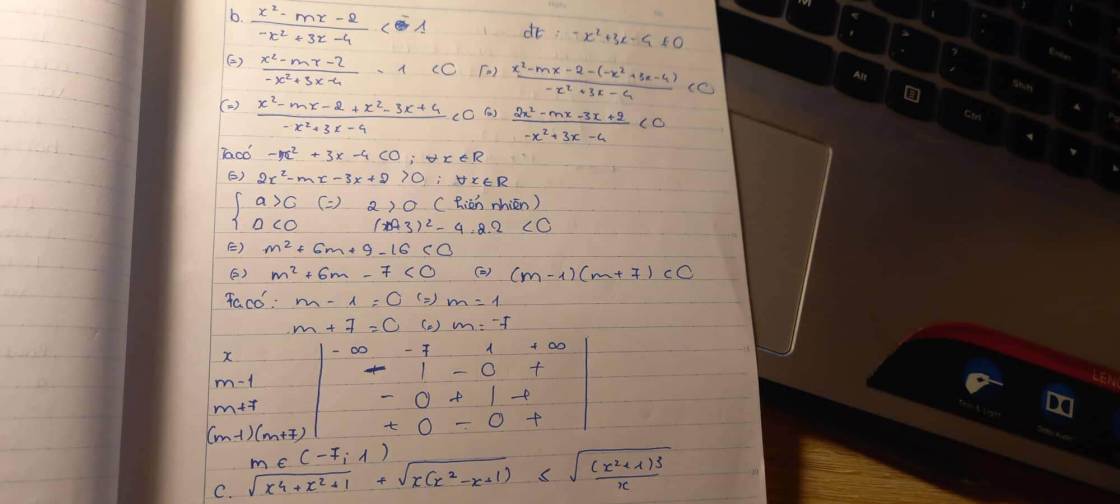 b. x² - mx - 2 / -x² + 3x - 4 < 1 đk : -x² + 3x - 4 ≠ 0
(=) x² - mx - 2 / -x² + 3x - 4 - 1 < 0 (=) x² - mx - 2 - (-x² + 3x - 4) / -x² + 3x - 4 < 0
(=) x² - mx - 2 + x² - 3x + 4 / -x² + 3x - 4 < 0 (=) 2x² - mx - 3x + 2 / -x² + 3x - 4 < 0
Ta có -x² + 3x - 4 < 0 ; ∀x ∈ R
(=) 2x² - mx - 3x + 2 > 0 ; ∀x ∈ R
{ a > 0 (=) 2 > 0 ( hiển nhiên )
Δ < 0 (m+3)² - 4.2.2 < 0
(=) m² + 6m + 9 - 16 < 0
(=) m² + 6m - 7 < 0 (=) (m - 1)(m + 7) < 0
Ta có : m - 1 = 0 (=) m = 1
m + 7 = 0 (=) m = -7
x | -∞ -7 1 +∞
m-1 | - | - 0 +
m+7 | - 0 + | +
(m-1)(m+7) | + 0 - 0 +
m ∈ (-7 ; 1)
c. √(x⁴ + x² + 1) + √(x(x² - x + 1)) ≤ √((x² + 1)³ / x)
Alt
Shift
Ctrl
Enter
LEN